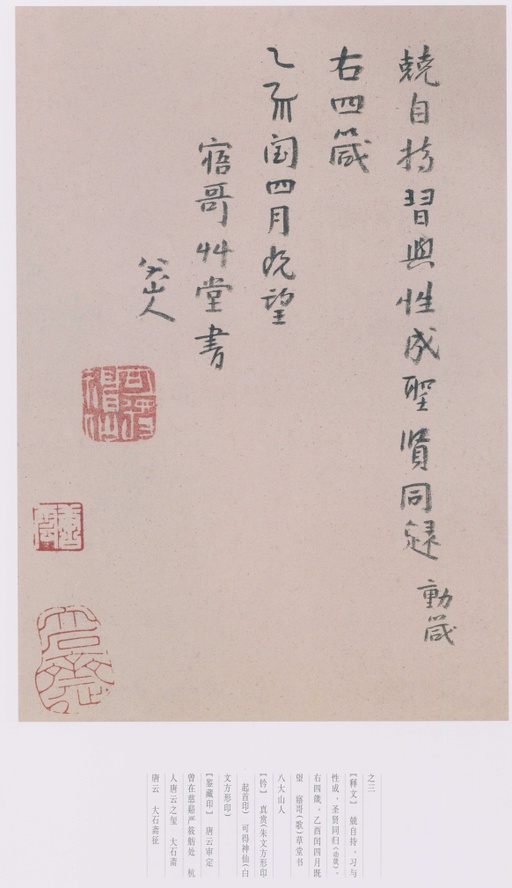 兢自持習與性成聖賢同歸 動箴
右四箴
乙丣閏四月既望
寤哥艸堂書
八大山人
可得神仙
大石斋
之三
【释文】 兢自持,习与
性成,圣贤同归(动箴)。
右四箴。乙酉闰四月既
望 寤哥(歌)草堂书
八大山人
【钤】 真赏(朱文方形印
、起首印) 可得神仙(白
文方形印)
【鉴藏印】 唐云审定
曾在慈谿严筱舫处 杭
人唐云之玺 大石斋
唐云 大石斋征